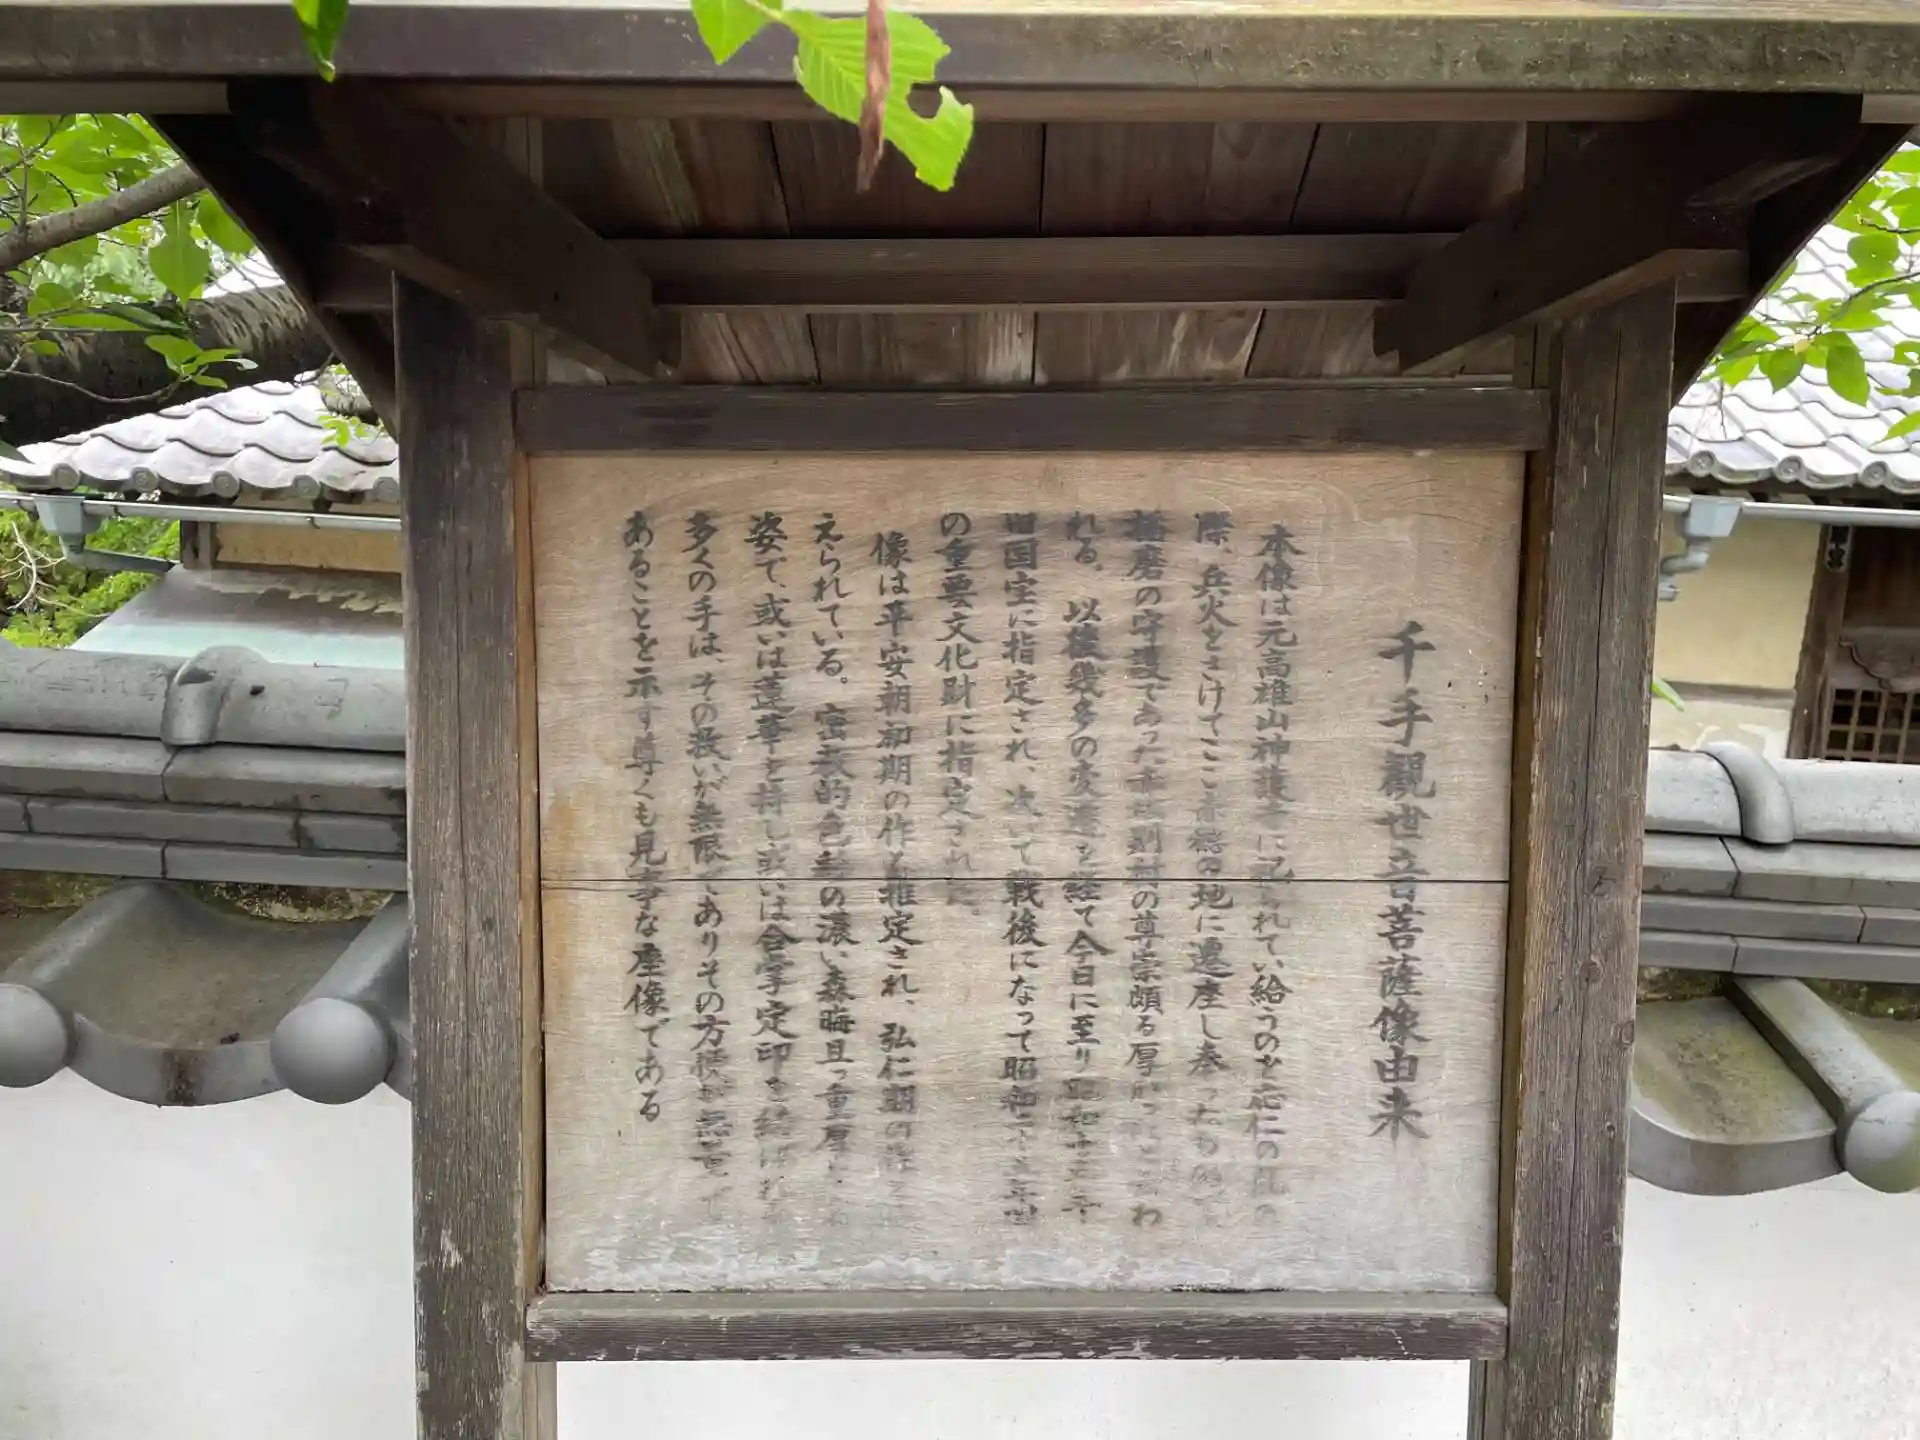 千手觀世音菩薩像由来
本像は元高雄山神護寺に祀られてい給うのを応仁の乱の
際、兵火をさけてここ赤穂の地に遷座し奉ったもので
播磨の守護であった赤松則村の尊崇頗る厚かったと云わ
れる。以後幾多の変遷を経て今日に至り昭和
旧国宝に指定され、次いで戦後になって昭和二十五年
の重要文化財に指定された。
像は平安朝初期の作と推定され、弘仁期の
えられている。密教的色彩の濃い森晦且つ重厚
姿で、或いは蓮華を持し或いは合掌定印を結ばれ
多くの手は、その救いが無限でありその方横が無
あることを示す尊くも見事な座像である